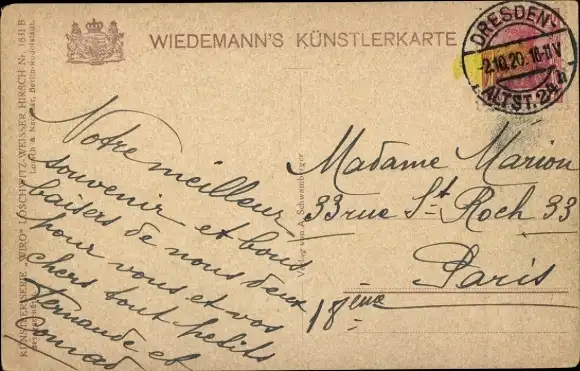 WIEDEMANN'S KÜNSTLERKARTE
DRESDEN-
-2.10.20. 10-11V
ALTST. 24
Votre meilleur
souvenir et bons
baisers de nous deux
pour vous et vos
chers tout petits
Fernande et
Conrad
Madame Marion
33 rue St Roch 33
Paris
18ème
Verlag von A. Schwamberger
KÜNSTLERSERIE „WIRO“ LOSCHWITZ-WEISSER HIRSCH Nr. 1811 B